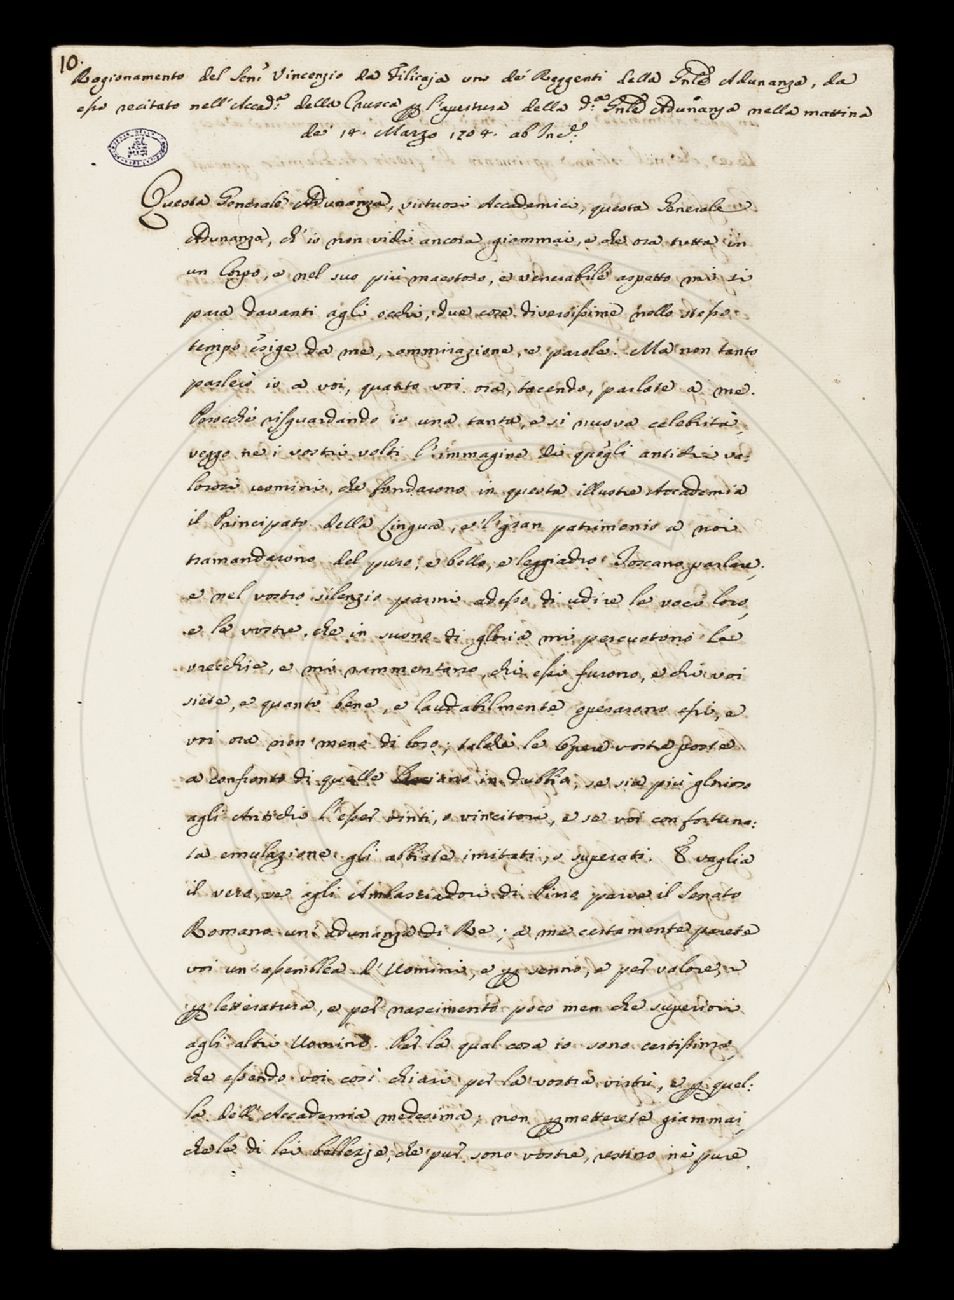 10.
Ragionamento del Senr. Vincenzio da Filicaja uno de' Reggenti della Gnle Adunanza, da
esso recitato nell'Accad.a della Crusca p l'apertura della d.a Gnle Adunanza nella mattina
de' 14. Marzo 1704. ab Inc.e
Questa Generale Adunanza, virtuosi Accademici, questa Generale
Adunanza, ch'io non vidi ancora giammai, e che ora tutta in
un Corpo, e nel suo più maestoso, e venerabile aspetto mi si
para davanti agli occhi, due cose diversissime nello stesso
tempo esige da me, ammirazione, e parole. Ma non tanto
parlerò io a voi, quanto voi ora, tacendo, parlate a me.
Perocchè risguardando io una tanta, e sì nuova celebrità,
veggo ne i vostri volti l'immagine di quegli antichi va:
lorosi uomini, che fondarono in questa illustre Accademia
il Principato della Lingua, e 'l gran patrimonio a noi
tramandarono del puro, e bello, e leggiadro Toscano parlare,
e nel vostro silenzio parmi adesso di udire le voci loro,
e le vostre, che in suono di gloria mi percuotono le
orecchie, e mi rammentano, chi essi furono, e chi voi
siete, e quanto bene, e laudabilmente operarono essi, e
voi ora non meno di loro; talchè le Opere vostre poste
a confronto di quelle in dubbio, se sia più glorioso
agli Antichi l'esser vinti, o vincitori, e se voi con fortuna:
ta emulazione gli abbiate imitati, o superati. E vaglia
il vero, se agli Ambasciadori di Pirro parve il Senato
Romano un'adunanza di Re; a me certamente parete
voi un'assemblea d'Uomini, e p senno, e per valore, e
p letteratura, e per nascimento poco men che superiori
agli altri Uomini. Per la qual cosa io sono certissimo,
che essendo voi così chiari per la vostra virtù, e p quel:
la dell'Accademia medesima, non pmetterete giammai,
che le di lei bellezze, che pur sono vostre, restino nè pure